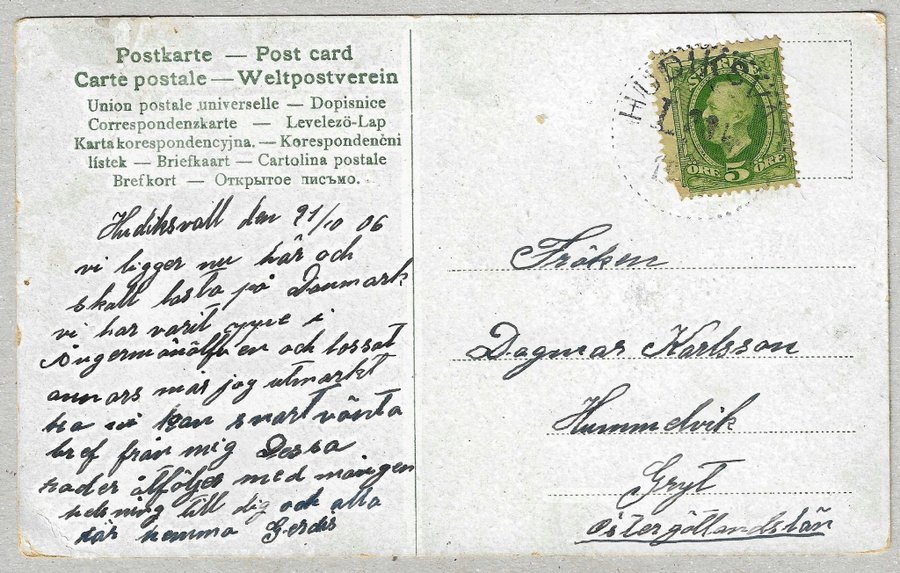 Postkarte — Post card
Carte postale — Weltpostverein
Union postale universelle — Dopisnice
Correspondenzkarte — Levelező-Lap
Karta korespondencyjna. — Korespondenční
lístek — Briefkaart — Cartolina postale
Brefkort — Открытое письмо.
Hudiksvall den 21/10 06
vi ligger nu här och
skall lasta på Danmark
vi har varit uppe i
Ångermanälfven och lossat
annars mår jag utmarkt
bra ni kan snart vänta
bref från mig Dessa
rader åtföljes med mången
helsning till dig och alla
där hemma
HUDIKSVALL
SVERIGE
ÖRE 5 ÖRE
Fröken
Dagmar Karlsson
Hummelvik
Gryt
Östergötlandslän